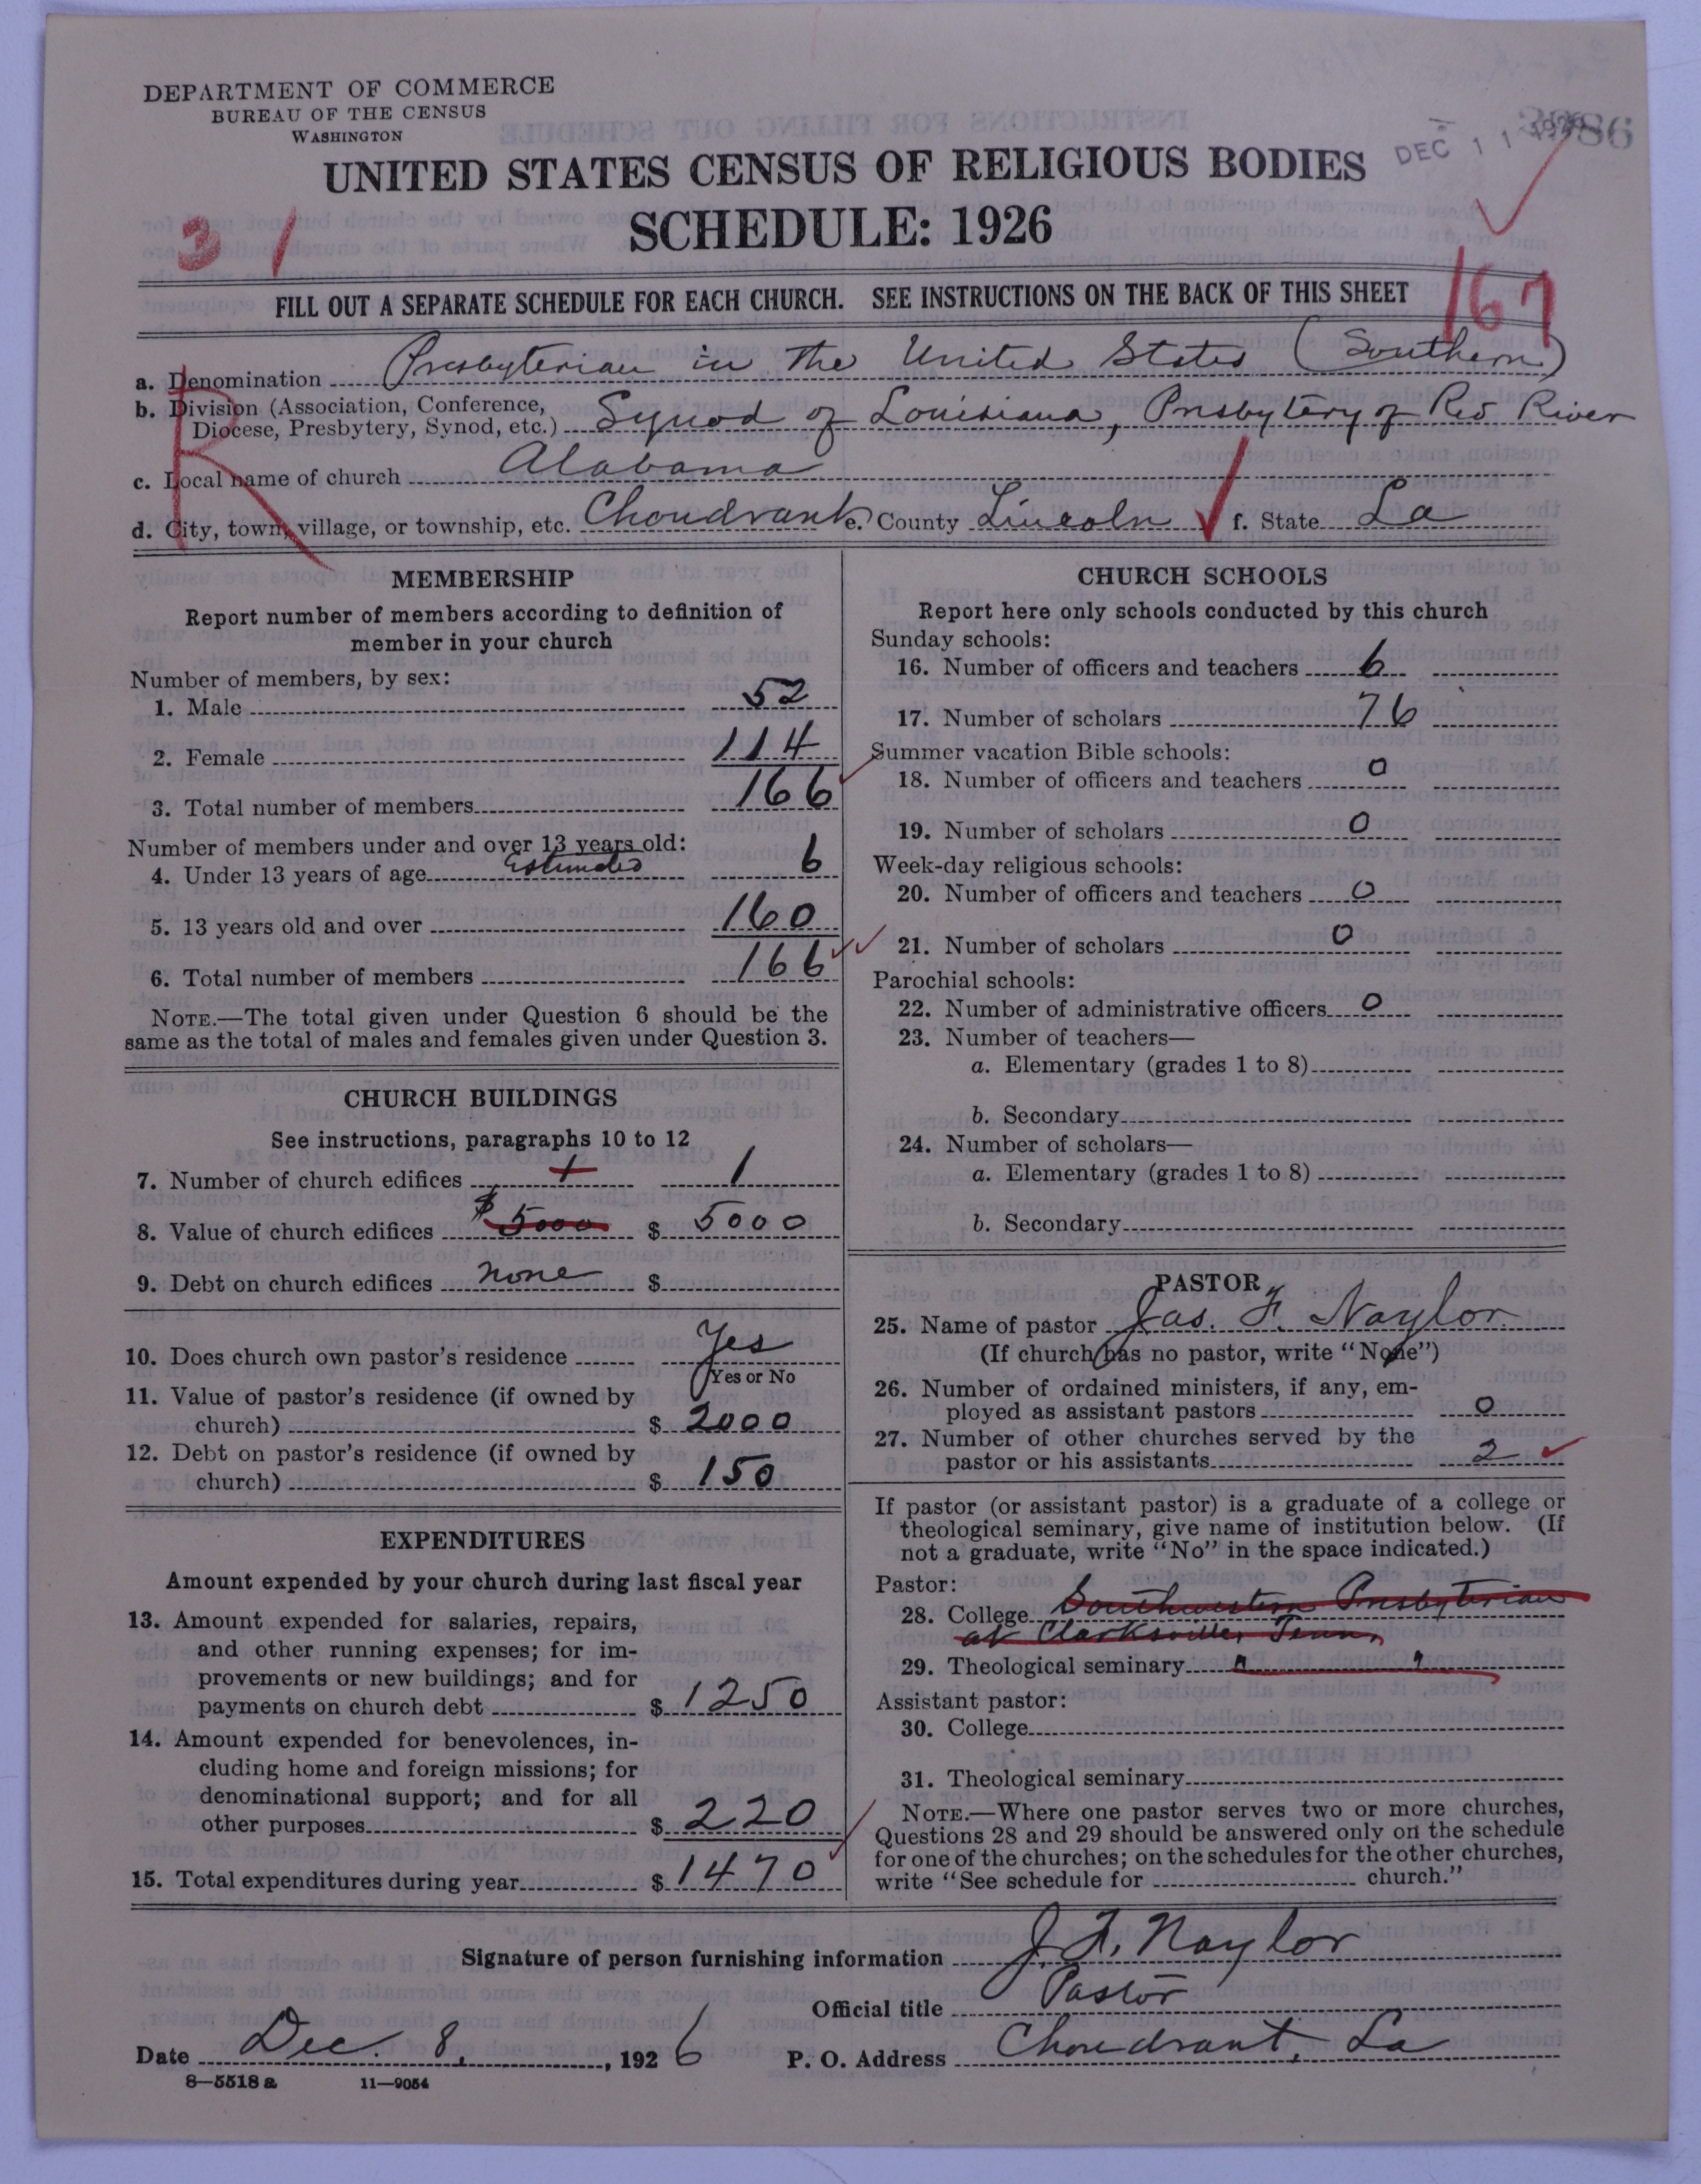 DEPARTMENT OF COMMERCE
BUREAU OF THE CENSUS
WASHINGTON
DEC 11 1926
UNITED STATES CENSUS OF RELIGIOUS BODIES
SCHEDULE: 1926
3 1
167
FILL OUT A SEPARATE SCHEDULE FOR EACH CHURCH. SEE INSTRUCTIONS ON THE BACK OF THIS SHEET
R
a. Denomination Presbyterian in the United States (Southern)
b. Division (Association, Conference, Diocese, Presbytery, Synod, etc.) Synod of Louisiana, Presbytery of Red River
c. Local name of church Alabama
d. City, town, village, or township, etc. Choudrant e. County Lincoln f. State La
MEMBERSHIP
Report number of members according to definition of
member in your church
Number of members, by sex:
1. Male 52
2. Female 114
3. Total number of members 166
Number of members under and over 13 years old:
4. Under 13 years of age Estimated 6
5. 13 years old and over 160
6. Total number of members 166
NOTE.—The total given under Question 6 should be the
same as the total of males and females given under Question 3.
CHURCH BUILDINGS
See instructions, paragraphs 10 to 12
7. Number of church edifices 1 1
8. Value of church edifices $5000 $ 5000
9. Debt on church edifices none $
10. Does church own pastor's residence Yes
Yes or No
11. Value of pastor's residence (if owned by
church) $ 2000
12. Debt on pastor's residence (if owned by
church) $ 150
EXPENDITURES
Amount expended by your church during last fiscal year
13. Amount expended for salaries, repairs,
and other running expenses; for im-
provements or new buildings; and for
payments on church debt $ 1250
14. Amount expended for benevolences, in-
cluding home and foreign missions; for
denominational support; and for all
other purposes $ 220
15. Total expenditures during year $ 1470
CHURCH SCHOOLS
Report here only schools conducted by this church
Sunday schools:
16. Number of officers and teachers 6
17. Number of scholars 76
Summer vacation Bible schools:
18. Number of officers and teachers 0
19. Number of scholars 0
Week-day religious schools:
20. Number of officers and teachers 0
21. Number of scholars 0
Parochial schools:
22. Number of administrative officers 0
23. Number of teachers—
a. Elementary (grades 1 to 8)
b. Secondary
24. Number of scholars—
a. Elementary (grades 1 to 8)
b. Secondary
PASTOR
25. Name of pastor Jas. F. Naylor
(If church has no pastor, write "None")
26. Number of ordained ministers, if any, em-
ployed as assistant pastors 0
27. Number of other churches served by the
pastor or his assistants 2
If pastor (or assistant pastor) is a graduate of a college or
theological seminary, give name of institution below. (If
not a graduate, write "No" in the space indicated.)
Pastor:
28. College Southwestern Presbyterian
at Clarksville, Tenn.
29. Theological seminary " "
Assistant pastor:
30. College
31. Theological seminary
NOTE.—Where one pastor serves two or more churches,
Questions 28 and 29 should be answered only on the schedule
for one of the churches; on the schedules for the other churches,
write "See schedule for church."
Signature of person furnishing information J. F. Naylor
Official title Pastor
Date Dec. 8, 1926 P. O. Address Choudrant, La
8—5518 a 11—9054